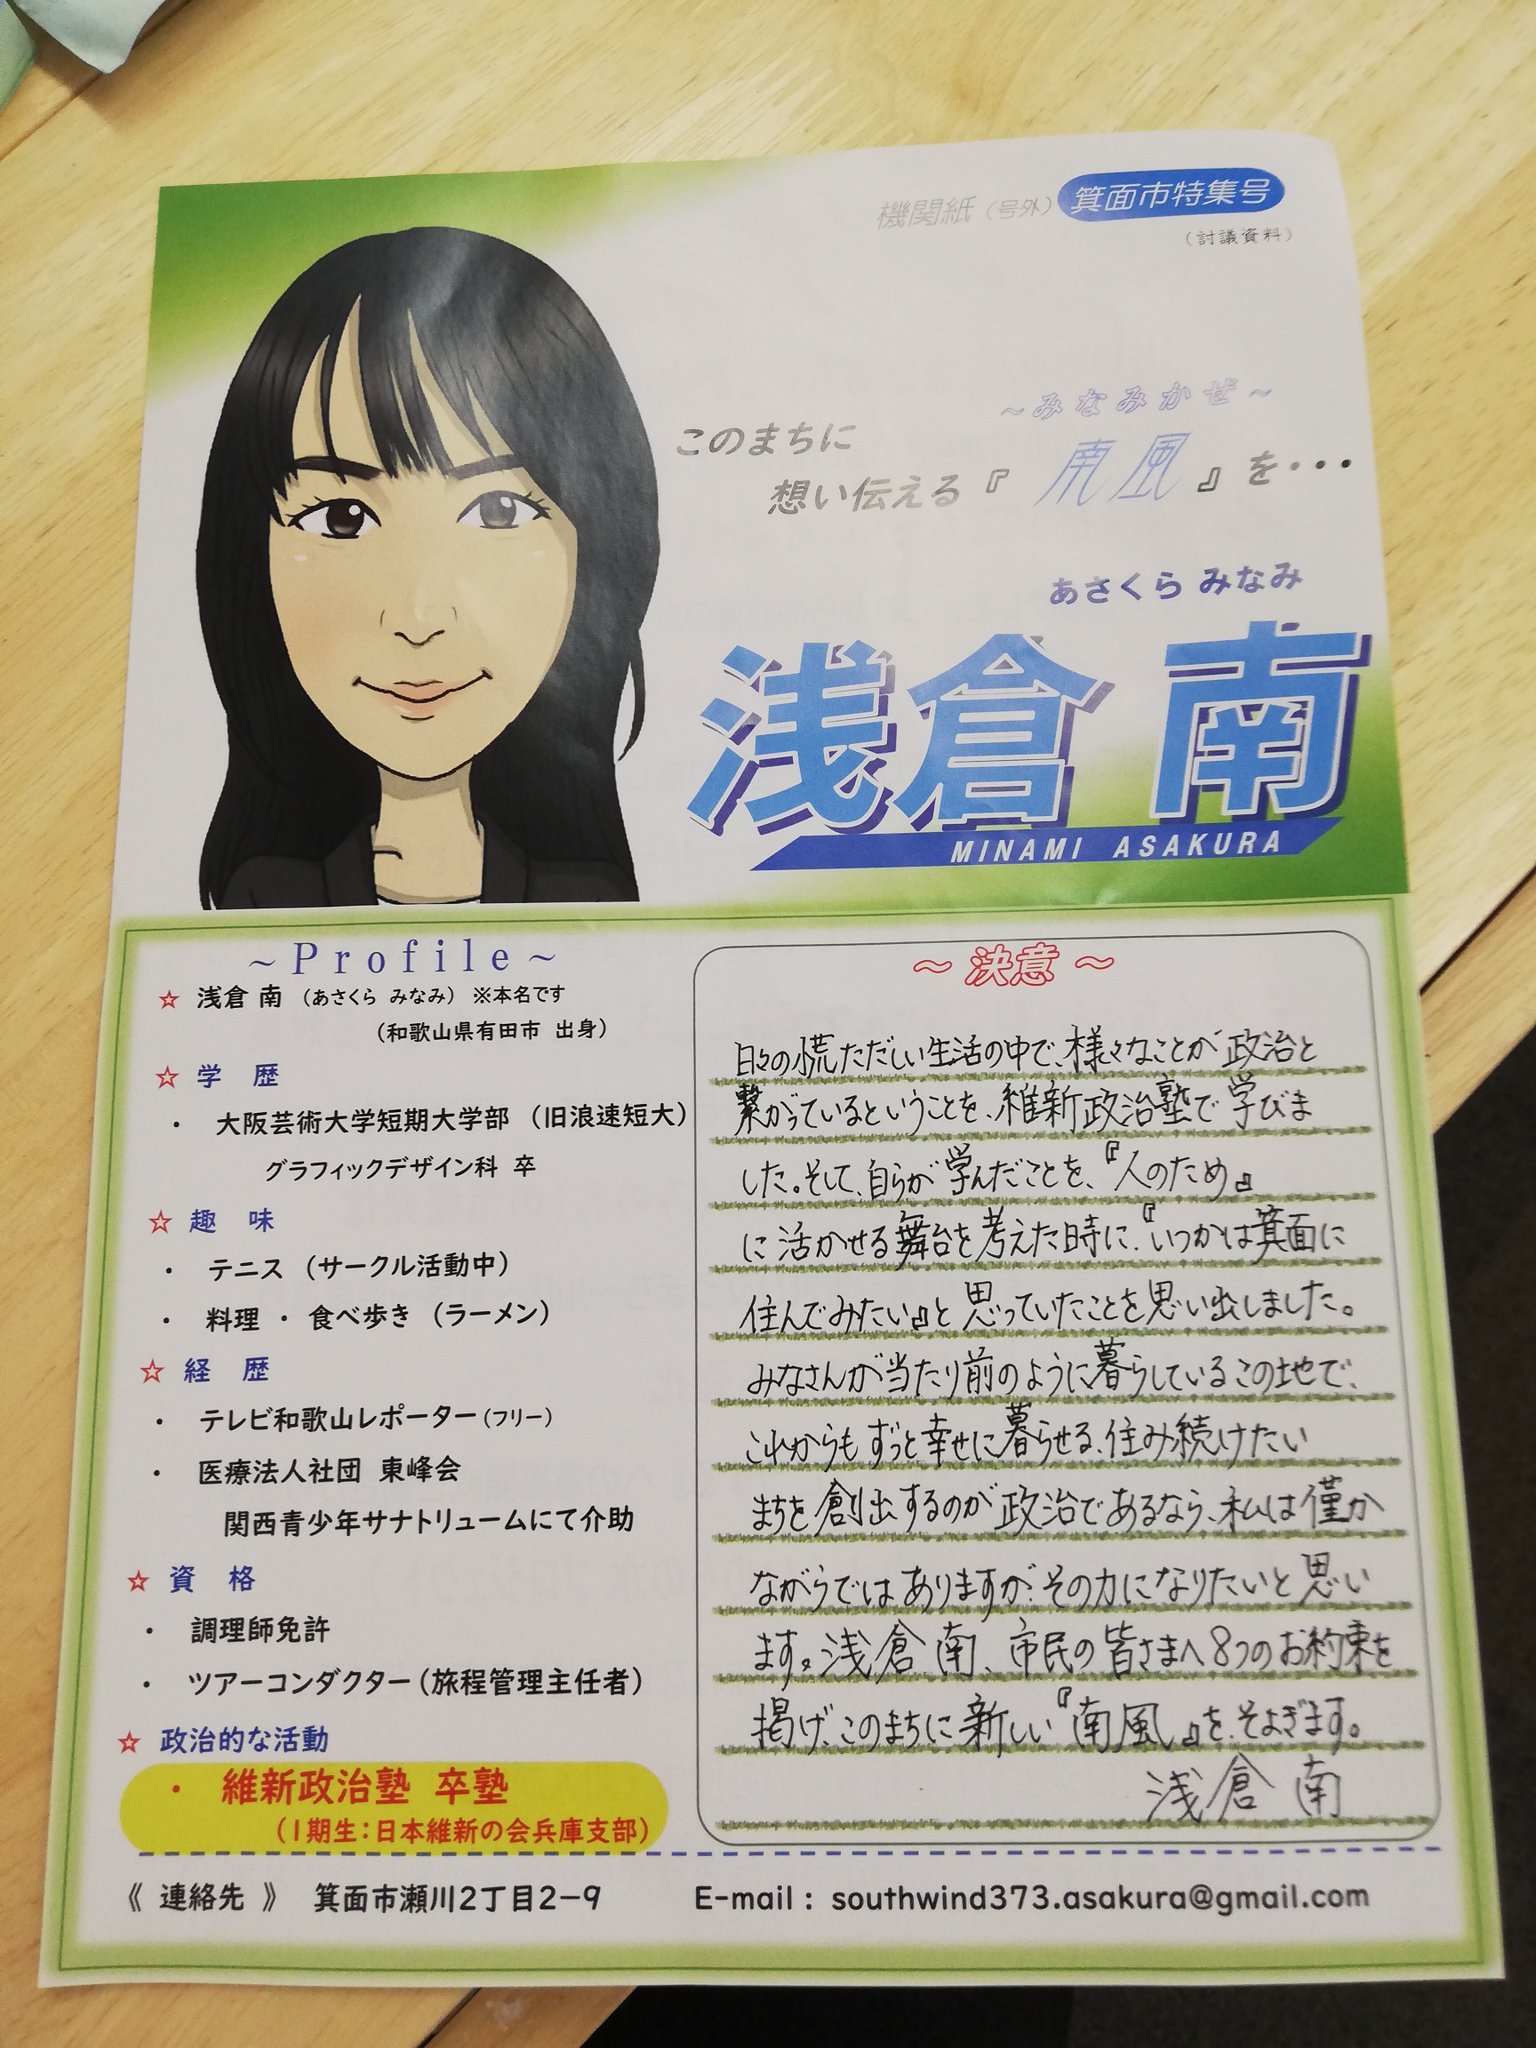 機関紙（号外） 箕面市特集号
（討議資料）
～みなみかぜ～
このまちに
想い伝える『 南風 』を・・・
あさくら みなみ
浅倉 南
MINAMI ASAKURA
～Profile～
☆ 浅倉 南 （あさくら みなみ） ※本名です
（和歌山県有田市 出身）
☆ 学 歴
・ 大阪芸術大学短期大学部 （旧浪速短大）
グラフィックデザイン科 卒
☆ 趣 味
・ テニス （サークル活動中）
・ 料理 ・ 食べ歩き （ラーメン）
☆ 経 歴
・ テレビ和歌山レポーター（フリー）
・ 医療法人社団 東峰会
関西青少年サナトリュームにて介助
☆ 資 格
・ 調理師免許
・ ツアーコンダクター（旅程管理主任者）
☆ 政治的な活動
・ 維新政治塾 卒塾
（1期生：日本維新の会兵庫支部）
～ 決意 ～
日々の慌ただしい生活の中で、様々なことが政治と
繋がっているということを、維新政治塾で学びま
した。そして、自らが学んだことを、『人のため』
に活かせる舞台を考えた時に、『いつかは箕面に
住んでみたい』と思っていたことを思い出しました。
みなさんが当たり前のように暮らしているこの地で、
これからもずっと幸せに暮らせる、住み続けたい
まちを創出するのが政治であるなら、私は僅か
ながらではありますが、その力になりたいと思い
ます。浅倉 南、市民の皆さまへ8つのお約束を
掲げ、このまちに新しい『南風』を、そよぎます。
浅倉 南
《 連絡先 》 箕面市瀬川2丁目2−9 E-mail : southwind373.asakura@gmail.com